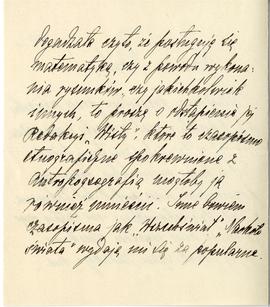 że posługuję się
matematyką, czy z powodu wykona-
nia rysunków, czy jakichkolwiek
innych, to proszę o odstąpienie jej
Redakcyi „Wisły", które to czasopismo
etnograficzne spokrewnione z
antropogeografią mogłoby ją
również umieścić. Inne bowiem
czasopisma jak „Wszechświat", „Naokoło
świata" wydają mi się za popularne.